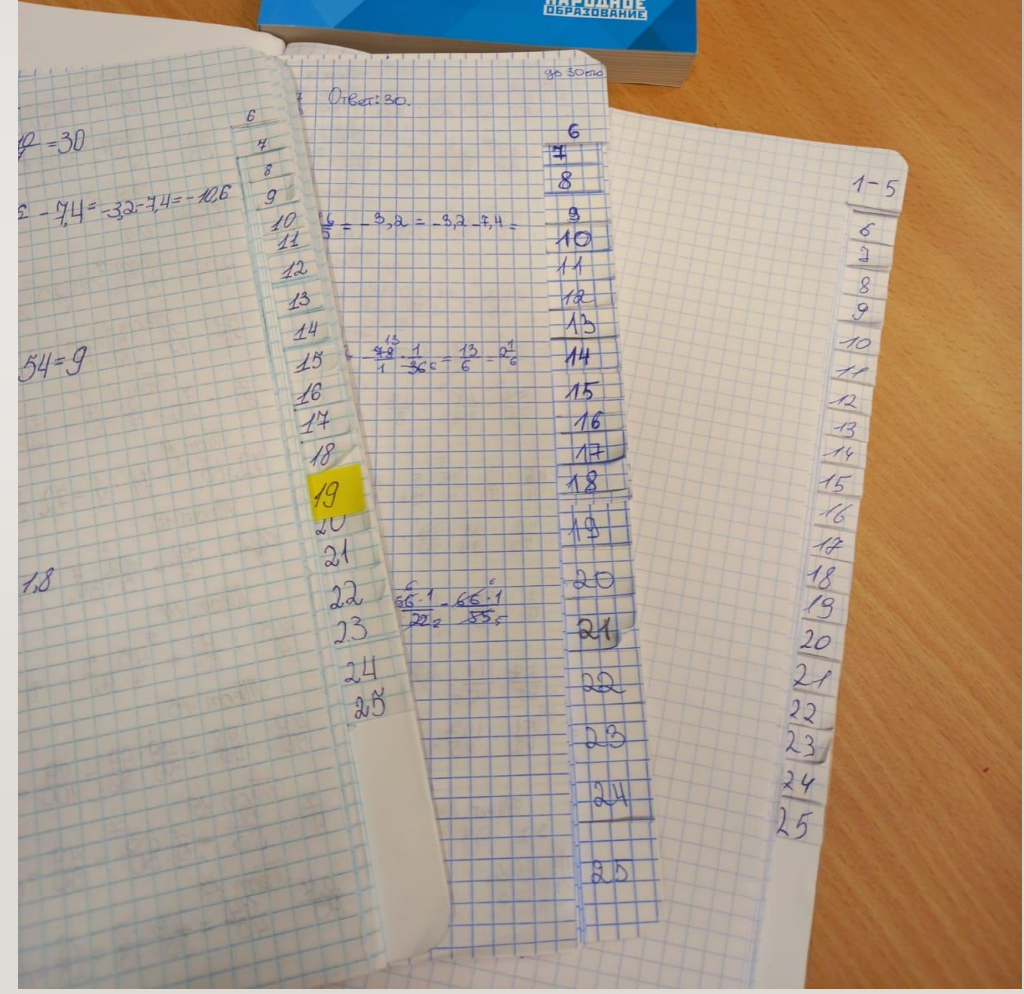 НАРОДНОЕ
ОБРАЗОВАНИЕ
= 30
- 7,4 = -3,2 - 7,4 = -10,6
54 = 9
1,8
6
7
8
9
10
11
12
13
14
15
16
17
18
19
20
21
22
23
24
25
до 30ого
Ответ: 30.
= - 3,2 = -3,2 - 7,4 =
13
78 · 1 = 13 = 2 1
1 36 6 6 6
6 6
66 · 1 - 66 · 1
22 2 55 5
6
7
8
9
10
11
12
13
14
15
16
17
18
19
20
21
22
23
24
25
1-5
6
7
8
9
10
11
12
13
14
15
16
17
18
19
20
21
22
23
24
25